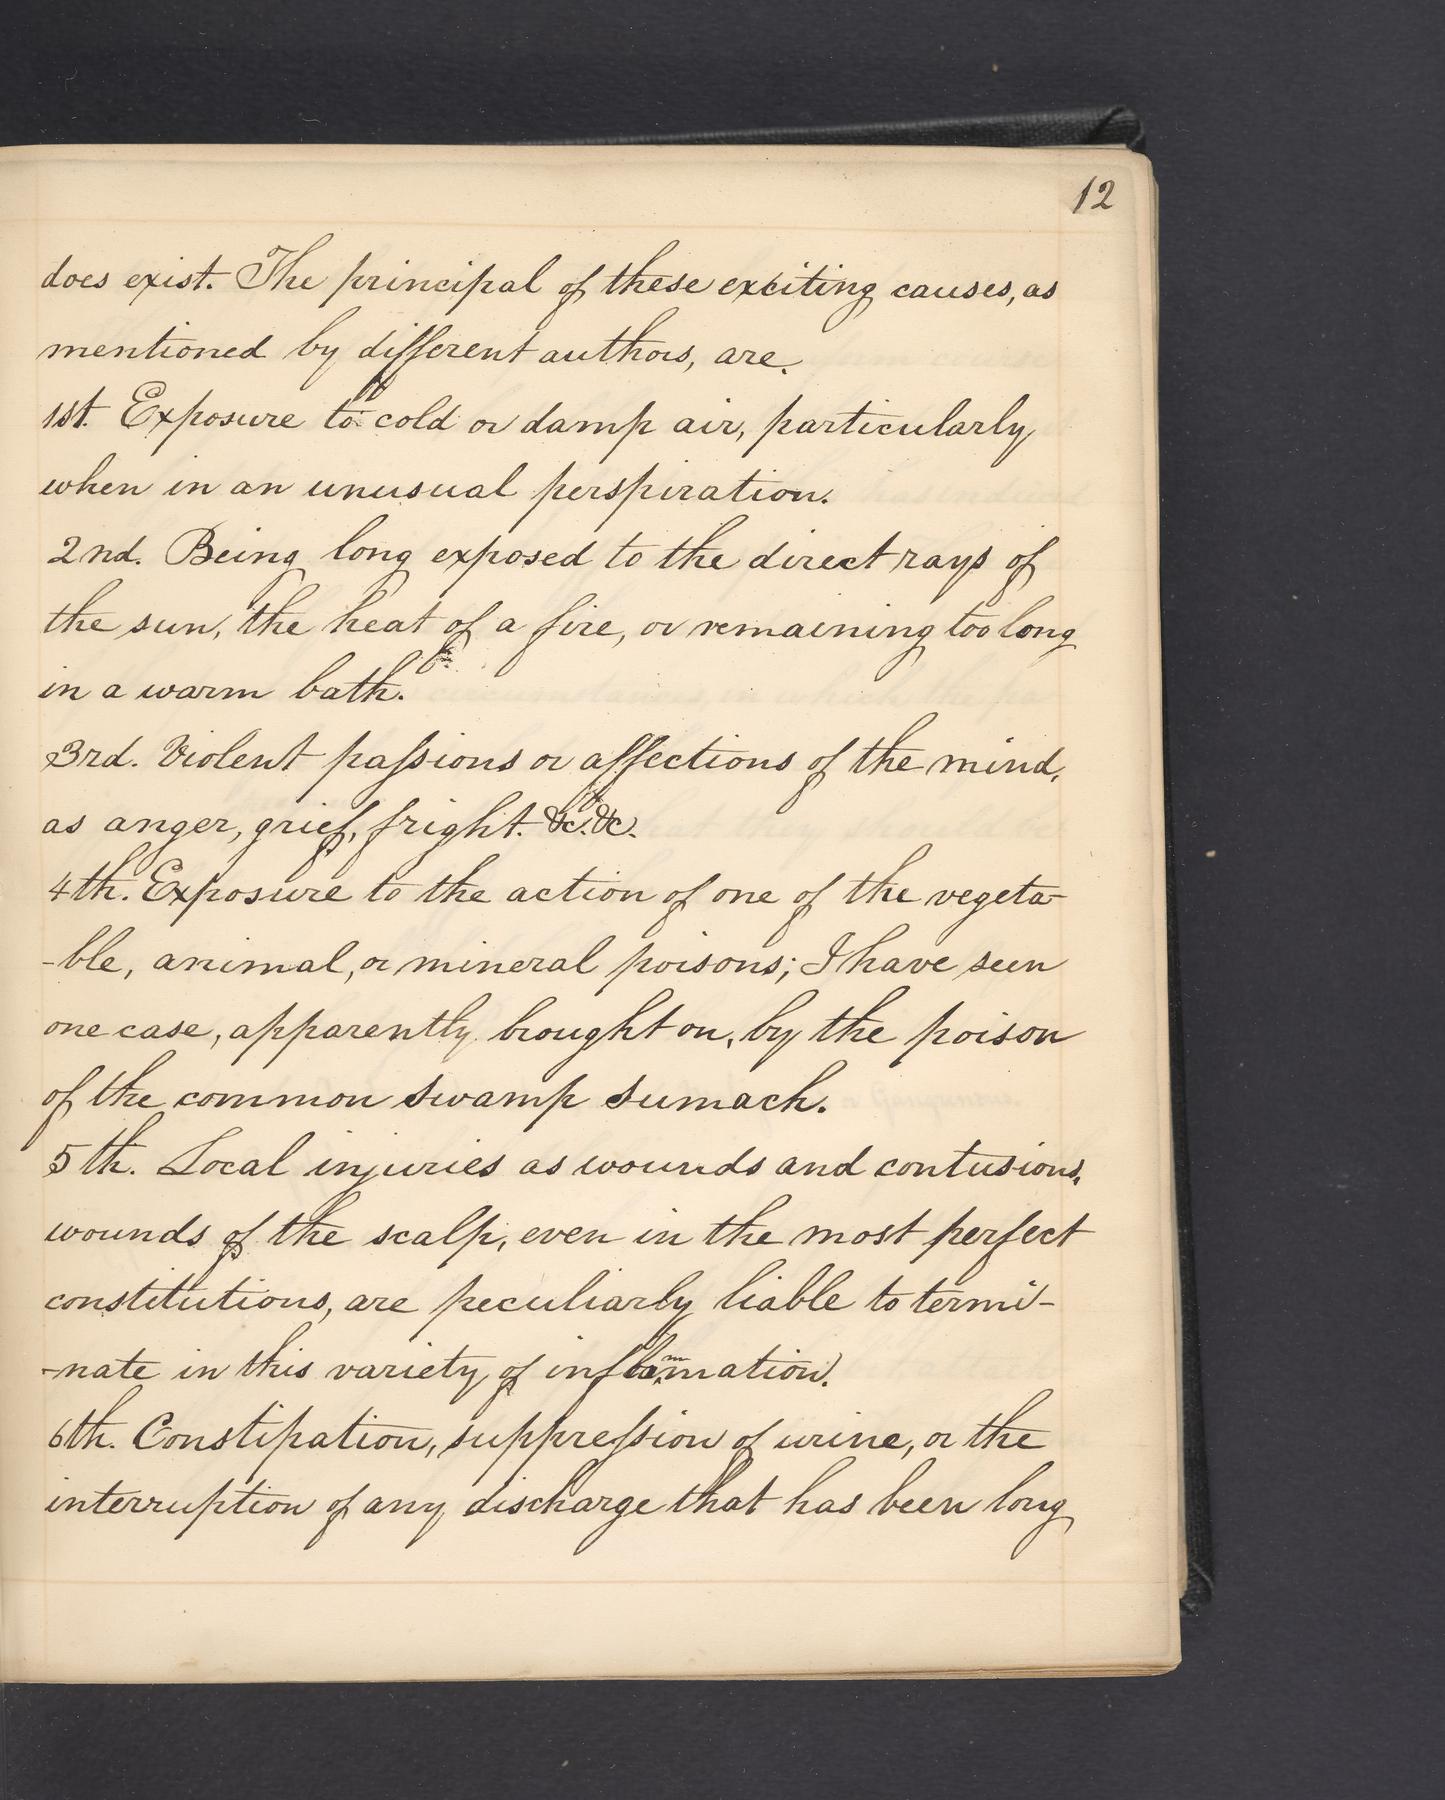 12
does exist. The principal of these exciting causes, as
mentioned by different authors, are.
1st. Exposure to cold or damp air, particularly
when in an unusual perspiration.
2nd. Being long exposed to the direct rays of
the sun, the heat of a fire, or remaining too long
in a warm bath.
3rd. Violent passions or affections of the mind,
as anger, grief, fright. &c. &c.
4th. Exposure to the action of one of the vegeta-
-ble, animal, or mineral poisons; I have seen
one case, apparently brought on, by the poison
of the common swamp sumach.
5th. Local injuries as wounds and contusions,
wounds of the scalp, even in the most perfect
constitutions, are peculiarly liable to termi-
-nate in this variety of inflammation.
6th. Constipation, suppression of urine, or the
interruption of any discharge that has been long